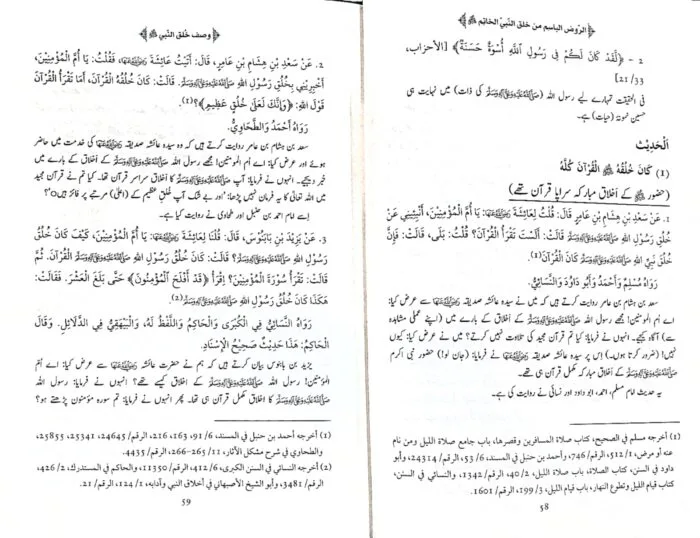 ﴿الرّوض الباسم من خلق النّبي الخاتم ﷺ﴾
2 - ﴿لَّقَدْ كَانَ لَكُمْ فِي رَسُولِ ٱللَّهِ أُسْوَةٌ حَسَنَةٌ﴾ [الأحزاب،
33/21]
فی الحقیقت تمہارے لیے رسول اللہ (ﷺ کی ذات) میں نہایت ہی
حسین نمونۂ (حیات) ہے۔
اَلْحَدِیْث
(1) كَانَ خُلُقُهُ ﷺ الْقُرْآنَ كُلَّهُ
﴿حضور ﷺ کے اَخلاقِ مبارکہ سراپا قرآن تھے﴾
1. عَنْ سَعْدِ بْنِ هِشَامِ بْنِ عَامِرٍ قَالَ: قُلْتُ لِعَائِشَةَ رضی اللہ عنہا: يَا أُمَّ الْمُؤْمِنِيْنَ، أَنْبِئِيْنِي عَنْ
خُلُقِ رَسُولِ اللهِ ﷺ قَالَتْ: أَلَسْتَ تَقْرَأُ الْقُرْآنَ؟ قُلْتُ: بَلَى، قَالَتْ: فَإِنَّ
خُلُقَ نَبِيِّ اللهِ ﷺ كَانَ الْقُرْآنَ.(1)
رَوَاهُ مُسْلِمٌ وَأَحْمَدُ وَأَبُو دَاوُدَ وَالنَّسَائِيُّ.
سعد بن ہشام بن عامر روایت کرتے ہیں کہ میں نے سیدہ عائشہ صدیقہ رضی اللہ عنہا سے عرض کیا:
اے اُم المومنین! مجھے رسول اللہ ﷺ کے اَخلاق کے بارے میں (اپنے عملی مشاہدہ
سے) آگاہ کیجیے۔ انہوں نے فرمایا: کیا تم قرآن مجید کی تلاوت نہیں کرتے؟ میں نے عرض کیا: کیوں
نہیں! (ضرور کرتا ہوں۔) اِس پر سیدہ عائشہ صدیقہ رضی اللہ عنہا نے فرمایا: (جان لو!) حضور نبی اکرم
ﷺ کے اَخلاقِ مبارکہ مکمل قرآن ہی تھے۔
یہ حدیث امام مسلم، احمد، ابو داود اور نسائی نے روایت کی ہے۔
(1) أخرجه مسلم في الصحيح، كتاب صلاة المسافرين وقصرها، باب جامع صلاة الليل ومن نام
عنه أو مرض، 1/512، الرقم/746، وأحمد بن حنبل في المسند، 6/53، الرقم/24314، وأبو
داود في السنن، كتاب الصلاة، باب في صلاة الليل، 2/40، الرقم/1342، والنسائي في السنن،
كتاب قيام الليل وتطوع النهار، باب قيام الليل، 3/199، الرقم/1601.
58
﴿وصف خُلق النّبي ﷺ﴾
2. عَنْ سَعْدِ بْنِ هِشَامِ بْنِ عَامِرٍ، قَالَ: أَتَيْتُ عَائِشَةَ رضی اللہ عنہا، فَقُلْتُ: يَا أُمَّ الْمُؤْمِنِيْنَ،
أَخْبِرِيْنِي بِخُلُقِ رَسُولِ اللهِ ﷺ. قَالَتْ: كَانَ خُلُقُهُ الْقُرْآنَ، أَمَا تَقْرَأُ الْقُرْآنَ
قَوْلَ اللهِ: ﴿وَإِنَّكَ لَعَلَىٰ خُلُقٍ عَظِيمٍ﴾؟(1).
رَوَاهُ أَحْمَدُ وَالطَّحَاوِيُّ.
سعد بن ہشام بن عامر روایت کرتے ہیں کہ وہ سیدہ عائشہ صدیقہ رضی اللہ عنہا کی خدمت میں حاضر
ہوئے اور عرض کیا: اے اُم المومنین! مجھے رسول اللہ ﷺ کے اَخلاق کے بارے میں
خبر دیجیے۔ انہوں نے فرمایا: آپ ﷺ کا اَخلاق سراسر قرآن تھا۔ کیا تم نے قرآن مجید
میں اللہ تعالیٰ کا یہ فرمان نہیں پڑھا: ’اور بے شک آپ خُلقِ عظیم کے (اعلیٰ) مرتبے پر فائز ہیں‘؟
اِسے امام احمد بن حنبل اور طحاوی نے روایت کیا ہے۔
3. عَنْ يَزِيْدَ بْنِ بَابَنُوْسَ، قَالَ: قُلْنَا لِعَائِشَةَ رضی اللہ عنہا: يَا أُمَّ الْمُؤْمِنِيْنَ، كَيْفَ كَانَ خُلُقُ
رَسُولِ اللهِ ﷺ؟ قَالَتْ: كَانَ خُلُقُ رَسُولِ اللهِ ﷺ الْقُرْآنَ. ثُمَّ
قَالَتْ: تَقْرَأُ سُورَةَ الْمُؤْمِنِيْنَ؟ اِقْرَأْ ﴿قَدْ أَفْلَحَ ٱلْمُؤْمِنُونَ﴾ حَتَّى بَلَغَ الْعَشْرَ. فَقَالَتْ:
هَكَذَا كَانَ خُلُقُ رَسُولِ اللهِ ﷺ.(2)
رَوَاهُ النَّسَائِيُّ فِي الْكُبْرَى وَالْحَاكِمُ وَاللَّفْظُ لَهُ، وَالْبَيْهَقِيُّ فِي الدَّلَائِلِ. وَقَالَ
الْحَاكِمُ: هَذَا حَدِيْثٌ صَحِيْحُ الْإِسْنَادِ.
یزید بن بابنوس بیان کرتے ہیں کہ ہم نے حضرت عائشہ رضی اللہ عنہا سے عرض کیا: اے اُم
المومنین! رسول اللہ ﷺ کے اَخلاق کیسے تھے؟ انہوں نے فرمایا: رسول اللہ
ﷺ کا اَخلاق مکمل قرآن ہی تھا۔ پھر انہوں نے فرمایا: تم سورہ مؤمنون پڑھتے ہو؟
(1) أخرجه أحمد بن حنبل في المسند، 6/91، 163، 216، الرقم/24645، 25341، 25855،
والطحاوي في شرح مشكل الآثار، 11/265-266، الرقم/4435.
(2) أخرجه النسائي في السنن الكبرى، 6/412، الرقم/11350، والحاكم في المستدرك، 2/426،
الرقم/3481، وأبو الشيخ الأصبهاني في أخلاق النبي وآدابه، 1/124، الرقم/21.
59